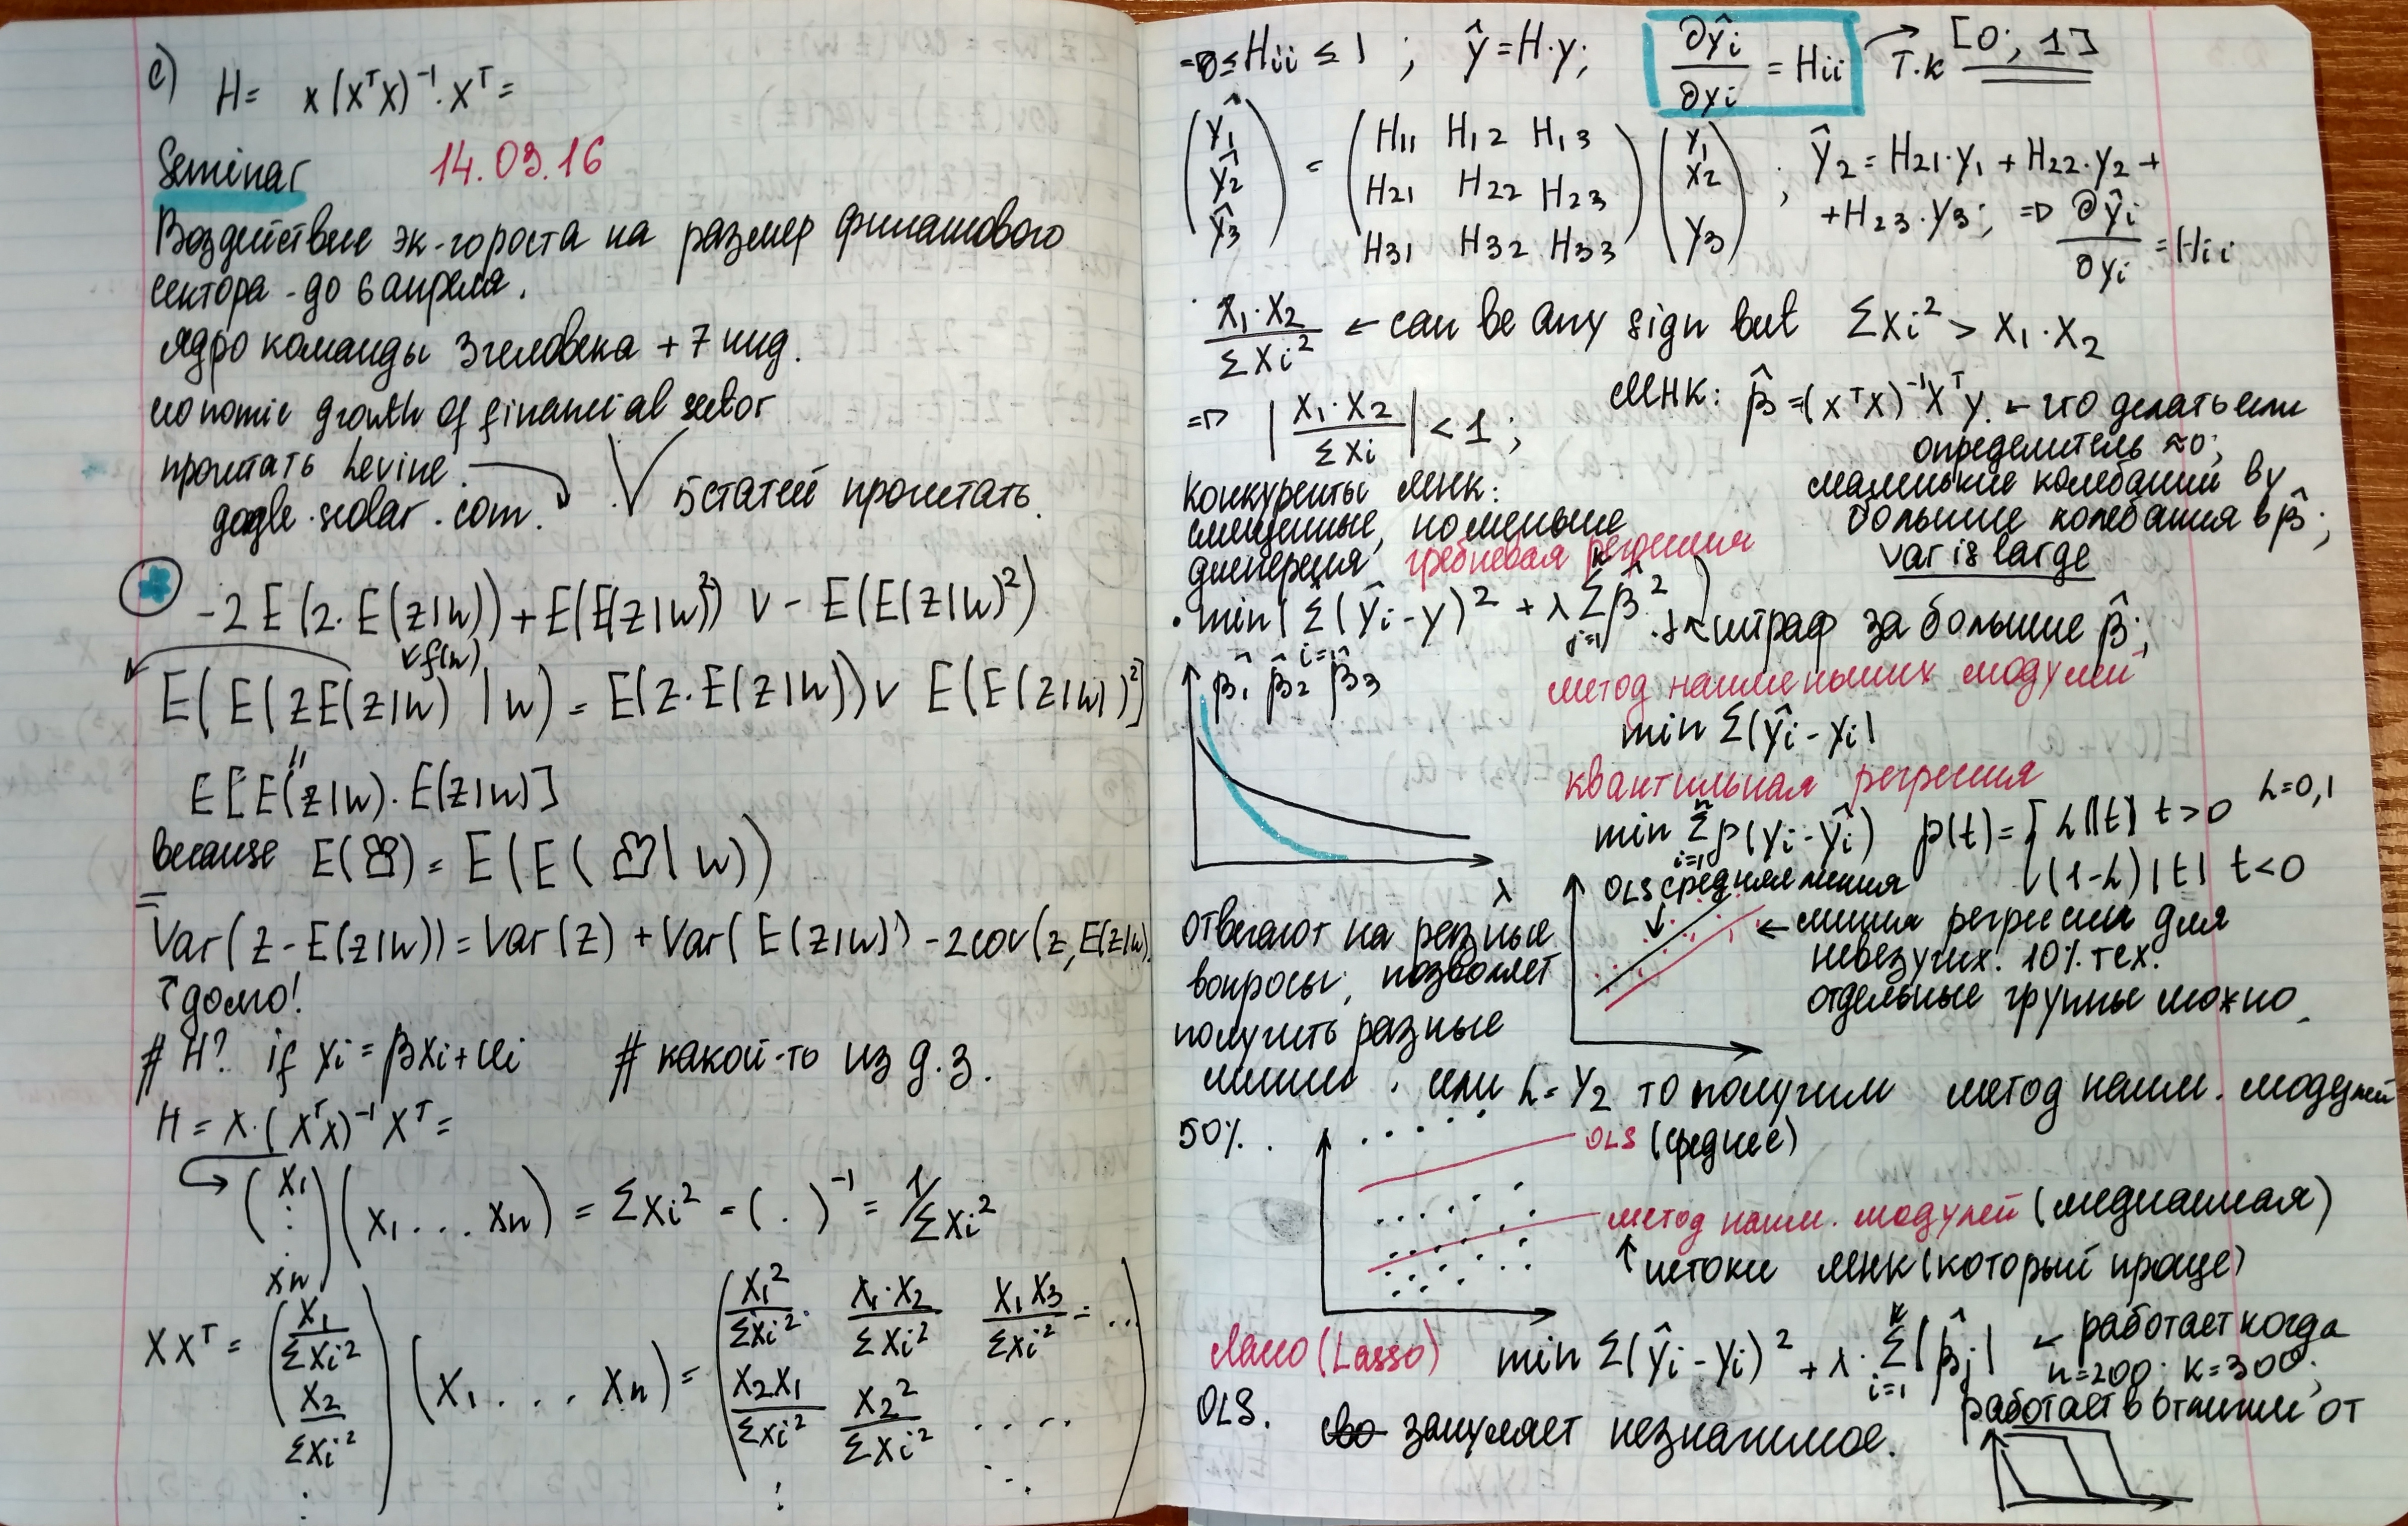 c) H = x(xᵀx)⁻¹·xᵀ =
Seminar 14.03.16
Воздействие эк-го роста на размер финансового
сектора - до 6 апреля.
ядро команды 3 человека + 7 инд.
economic growth of financial sector
прочитать Levine.
google.scolar.com. 5 статей прочитать.
-2E(z·E(z|w)) + E(E(z|w)²) v - E(E(z|w)²)
f(w)
E(E(zE(z|w) |w) = E(z·E(z|w)) v E(E(z|w)²]
"
E[E(z|w)·E(z|w)]
because E( ) = E(E( |w))
Var(z-E(z|w)) = Var(z) + Var(E(z|w)) - 2cov(z, E(z|w)
↑ домо!
# H? if yi = βxi + ui # какой-то из д.з.
H = X·(XᵀX)⁻¹Xᵀ =
(x₁ ⋮ xn)(x₁ ... xn) = Σxi² = ( . )⁻¹ = 1/Σxi²
XXᵀ = (x₁/Σxi² x₂/Σxi² ⋮)(x₁ ... xn) = (x₁²/Σxi² x₁·x₂/Σxi² x₁x₃/Σxi² = ...
x₂x₁/Σxi² x₂²/Σxi² ....
⇒ 0 ≤ Hii ≤ 1 ; ŷ = H·y; ∂ŷi/∂yi = Hii → т.к [0; 1]
(ŷ₁ ŷ₂ ŷ₃) = (H₁₁ H₁₂ H₁₃ H₂₁ H₂₂ H₂₃ H₃₁ H₃₂ H₃₃)(y₁ y₂ y₃) ; ŷ₂ = H₂₁·y₁ + H₂₂·y₂ +
+ H₂₃·y₃; ⇒ ∂ŷi/∂yi = Hii
x₁·x₂/Σxi² ← can be any sign but Σxi² > x₁·x₂
⇒ |x₁·x₂/Σxi| < 1;
МНК: β̂ = (xᵀx)⁻¹xᵀy. ← что делать если
определитель ≈ 0;
маленькие колебания в y
большие колебания в β̂;
var is large
конкуренты МНК:
смещенные, но меньше
дисперсия гребневая регрессия
· min(Σ(ŷi-y)² + λ Σβ̂²) ← штраф за большие β̂;
β̂₁ β̂₂ β̂₃
λ
метод наименьших модулей
min Σ|ŷi - yi|
квантильная регрессия
min Σρ(yi-ŷi) ρ(t) = [ h|t| t>0 h=0,1
(1-h)|t| t<0
OLS средняя линия
← линия регрессии для
невезучих. 10% тех.
отдельные группы можно.
отвечают на разные
вопросы, позволяет
получить разные
линии. или h = 1/2 то получим метод наим. модулей
50%. OLS (среднее)
метод наим. модулей (медианная)
↑ истоки МНК (который проще)
Лассо (Lasso) min Σ(ŷi-yi)² + λ·Σ|β̂j| ← работает когда
n=200; k=300;
работает в отличии от
OLS. зануляет незначимое.